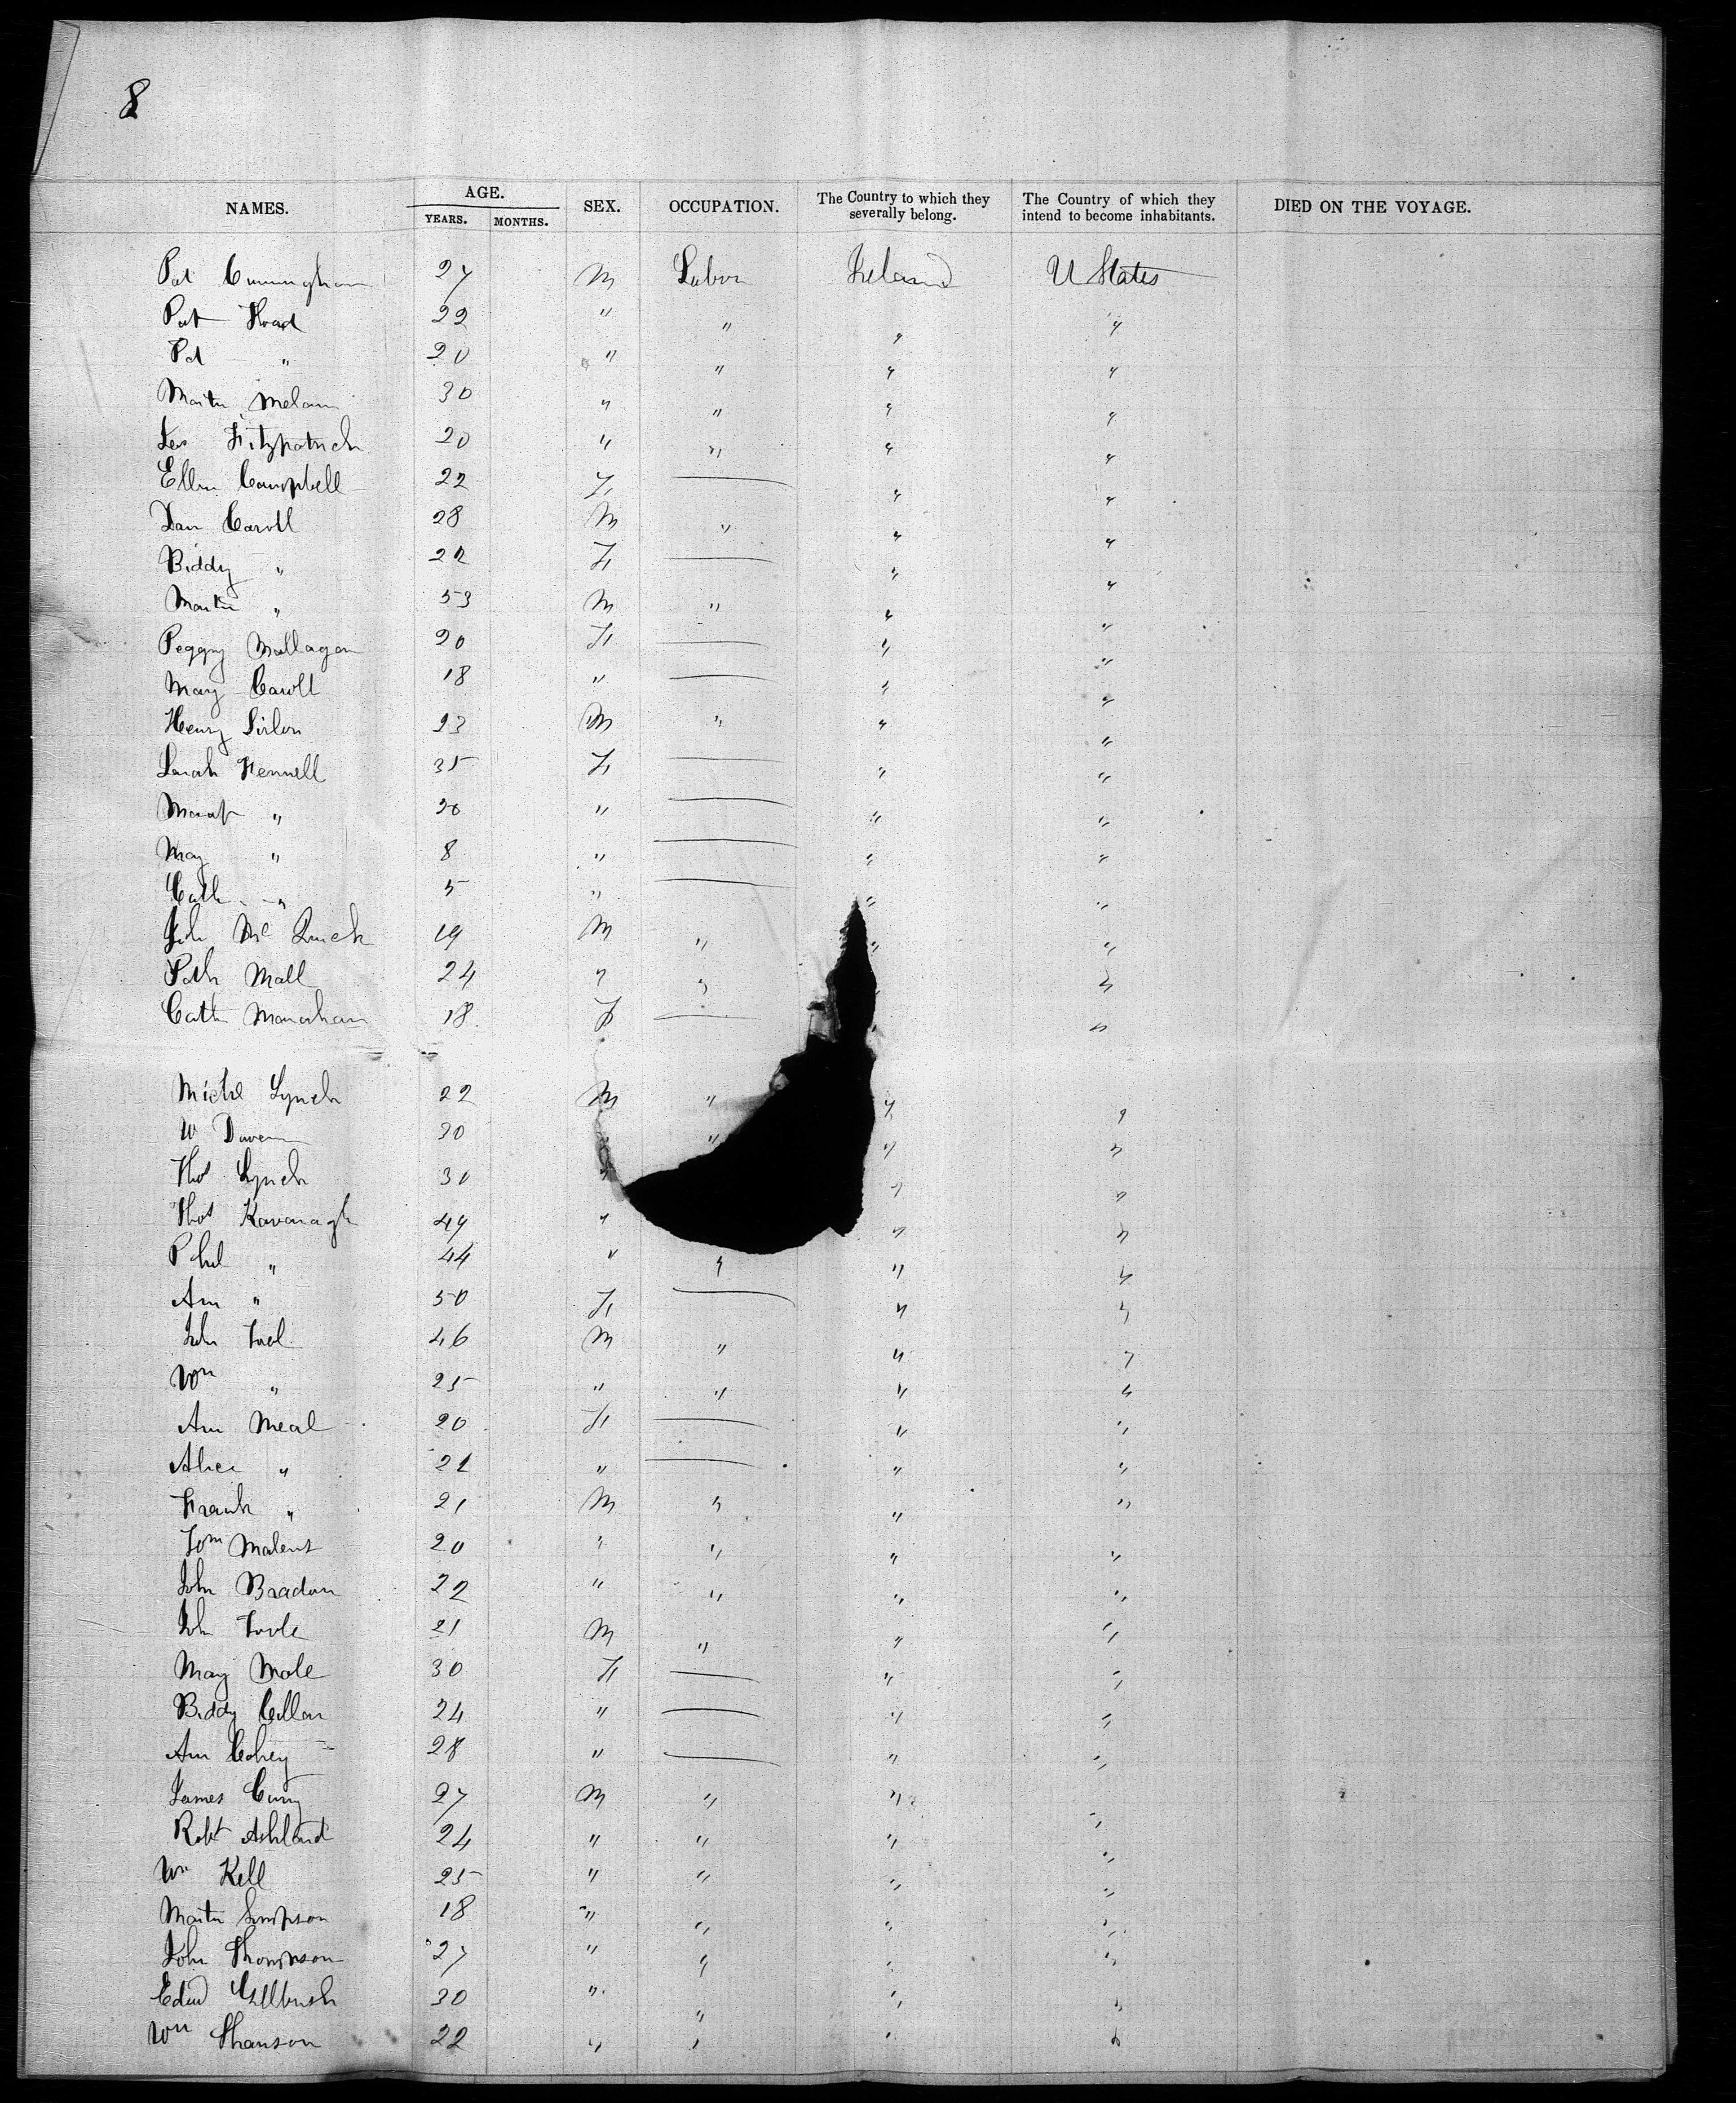 8
NAMES. AGE. YEARS. MONTHS. SEX. OCCUPATION. The Country to which they severally belong. The Country of which they intend to become inhabitants. DIED ON THE VOYAGE.
Pat Cunningham 27 M Labor Ireland U States
Pat Hoad 22 " " " "
Pat " 20 " " " "
Martin 30 " " " "
Fitzpatrick 20 " " " "
Ellen Campbell 22 F — " "
Dan Caroll 28 M " " "
Biddy " 22 F — " "
Martin " 53 M " " "
Peggy Mallagan 20 F — " "
Mary Caroll 18 " — " "
Henry 23 M " " "
Sarah Fennell 35 F — " "
Margt " 20 " — " "
Mary " 8 " — " "
Cath " 5 " — " "
John Mc 19 M " " "
Patk Mall 24 " " "
Cath Monahan 18 F — "
Michl Lynch 22 M " " "
W 30 " " " "
Thos Lynch 30 " " "
Thos Kavanagh 49 " " "
Phil " 44 " " " "
Ann " 50 F — " "
John Tool 46 M " " "
Wm " 25 " " " "
Ann Meal 20 F — " "
Alice " 21 " — " "
Frank " 21 M " " "
Tom 20 " " " "
John Bradon 22 " " " "
John Toole 21 M " " "
Mary Mole 30 F — " "
Biddy Cullon 24 " — " "
Ann 28 " — " "
James 27 M " " "
Robt Ashland 24 " " " "
Wm Kell 25 " " " "
Martin Simpson 18 " " " "
John Thompson 27 " " " "
Edwd 30 " " " "
Wm Thanson 22 " " " "